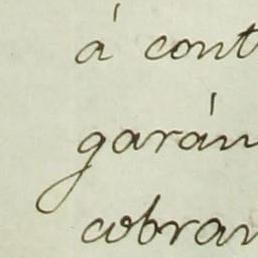 á cont
garán
cobran